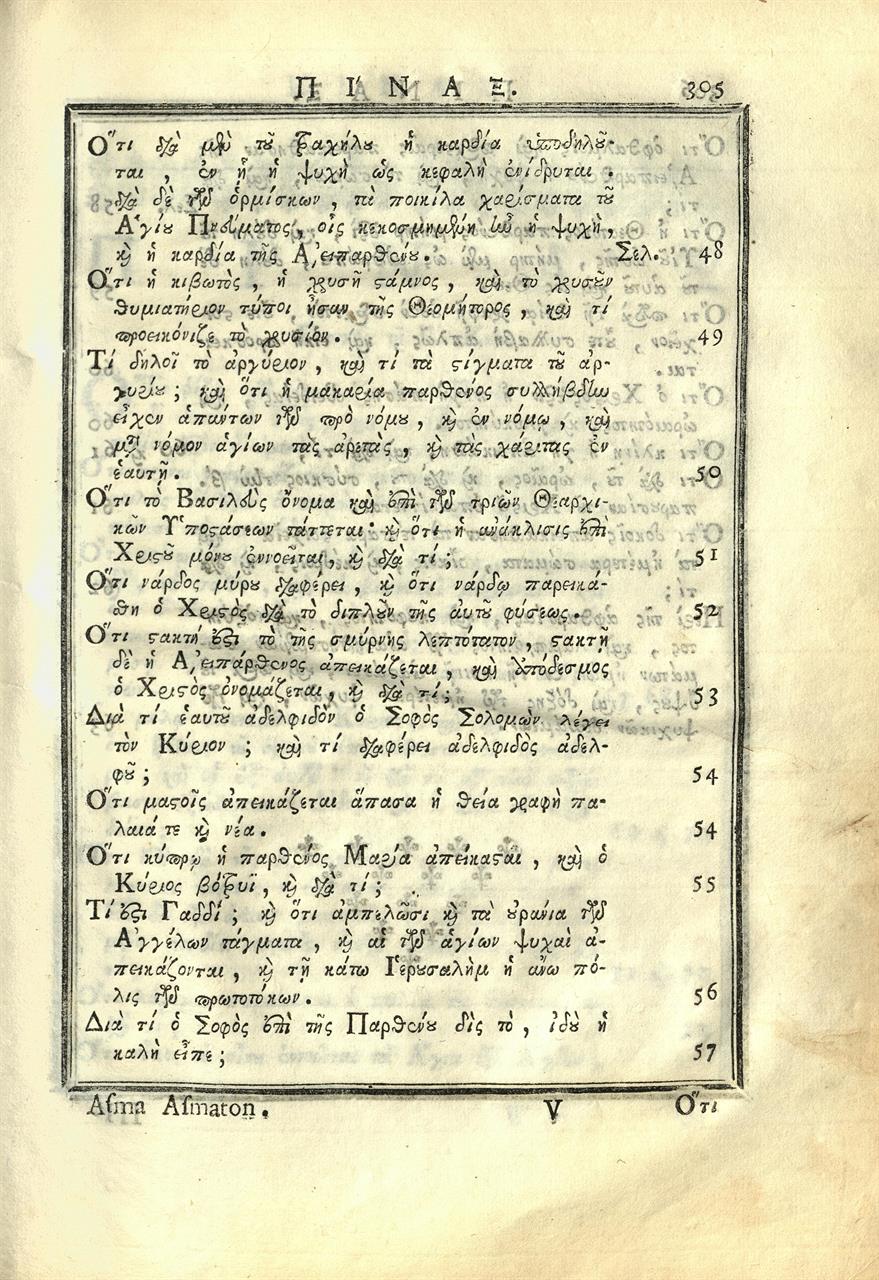 ΠΙΝΑΞ. 305
Ὅτι διὰ μὲν τοῦ τραχήλου ἡ καρδία ὑποδηλοῦ-
ται, ἐν ᾗ ἡ ψυχὴ ὡς κεφαλὴ ἐνίδρυται.
διὰ δὲ τῶν ὁρμίσκων, τὰ ποικίλα χαρίσματα τοῦ
Ἁγίου Πνεύματος, οἷς κεκοσμημένη ἦν ἡ ψυχὴ,
καὶ ἡ καρδία τῆς Ἀειπαρθένου. Σελ. 48
Ὅτι ἡ κιβωτὸς, ἡ χρυσῆ στάμνος, καὶ τὸ χρυσοῦν
θυμιατήριον τύποι ἦσαν τῆς Θεομήτορος, καὶ τί
προεικόνιζε τὸ χρυσίον. 49
Τί δηλοῖ τὸ ἀργύριον, καὶ τί τὰ στίγματα τοῦ ἀρ-
γυρίου; καὶ ὅτι ἡ μακαρία παρθένος συλλήβδην
εἶχεν ἁπάντων τῶν πρὸ νόμου, καὶ ἐν νόμῳ, καὶ
μετὰ νόμον ἁγίων τὰς ἀρετὰς, καὶ τὰς χάριτας ἐν
ἑαυτῇ. 50
Ὅτι τὸ Βασιλεὺς ὄνομα καὶ ἐπὶ τῶν τριῶν Θεαρχι-
κῶν Ὑποστάσεων τάττεται· καὶ ὅτι ἡ ἀνάκλισις ἐπὶ
Χριστοῦ μόνου ἐννοεῖται, καὶ διὰ τί; 51
Ὅτι νάρδος μύρου διαφέρει, καὶ ὅτι νάρδῳ παρεικά-
θη ὁ Χριστὸς διὰ τὸ διπλοῦν τῆς αὐτοῦ φύσεως. 52
Ὅτι στακτή ἐστι τὸ τῆς σμύρνης λεπτότατον, στακτῇ
δὲ ἡ Ἀειπάρθενος ἀπεικάζεται, καὶ Ἀπόδεσμος
ὁ Χριστὸς ὀνομάζεται, καὶ διὰ τί; 53
Διὰ τί ἑαυτοῦ ἀδελφιδὸν ὁ Σοφὸς Σολομὼν λέγει
τὸν Κύριον; καὶ τί διαφέρει ἀδελφιδὸς ἀδελ-
φοῦ; 54
Ὅτι μαστοῖς ἀπεικάζεται ἅπασα ἡ θεία γραφὴ πα-
λαιά τε καὶ νέα. 54
Ὅτι κύπρῳ ἡ παρθένος Μαρία ἀπείκασται, καὶ ὁ
Κύριος βότρυϊ, καὶ διὰ τί; 55
Τί ἐστι Γαδδί; καὶ ὅτι ἀμπελῶσι καὶ τὰ οὐράνια τῶν
Ἀγγέλων τάγματα, καὶ αἱ τῶν ἁγίων ψυχαὶ ἀ-
πεικάζονται, καὶ τῇ κάτω Ἱερουσαλὴμ ἡ ἄνω πό-
λις τῶν πρωτοτόκων. 56
Διὰ τί ὁ Σοφὸς ἐπὶ τῆς Παρθένου δὶς τὸ, ἰδοὺ ἡ
καλὴ εἶπε; 57
Aſma Aſmaton. V Ὅτι